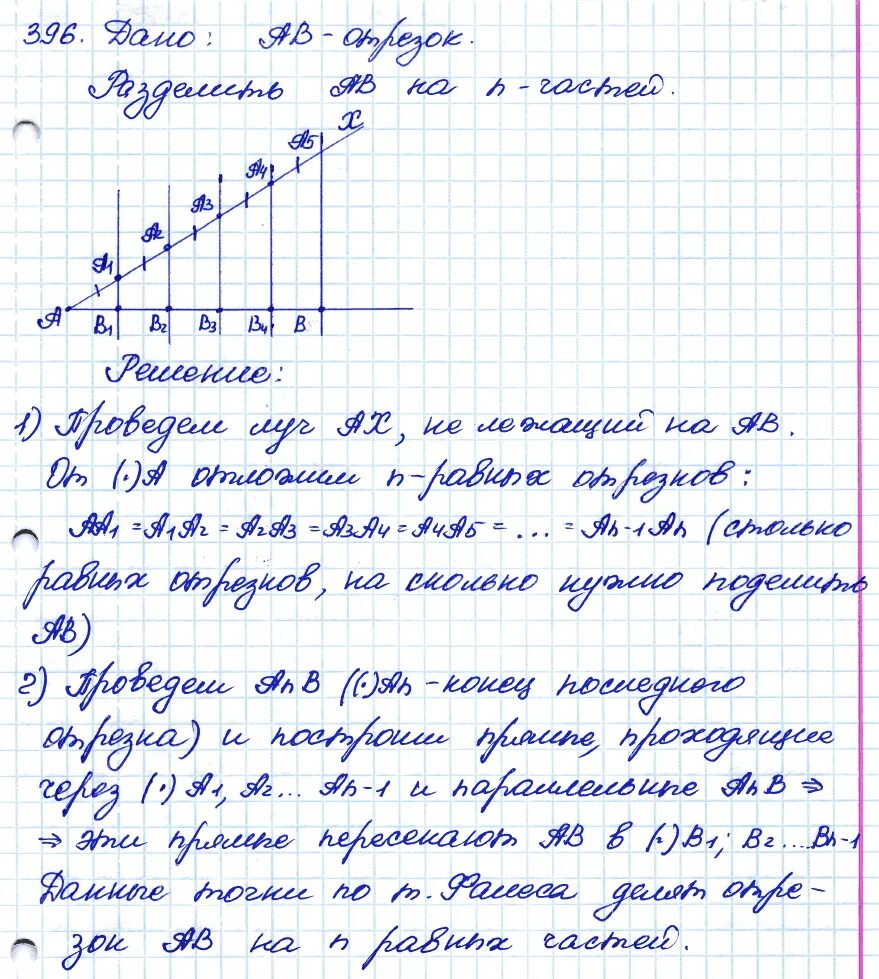 396. Дано: AB - отрезок.
Разделить AB на n - частей.
X
A5
A4
A3
A2
A1
A B1 B2 B3 B4 B
Решение:
1) Проведем луч AX, не лежащий на AB.
От (·)A отложим n-равных отрезков:
AA1 = A1A2 = A2A3 = A3A4 = A4A5 = ... = An-1An (столько
равных отрезков, на сколько нужно поделить
AB)
2) Проведем AnB ((·)An - конец последнего
отрезка) и построим прямые, проходящие
через (·) A1, A2... An-1 и параллельные AnB ⇒
⇒ эти прямые пересекают AB в (·)B1; B2....Bn-1
Данные точки по т. Фалеса делят отре-
зок AB на n равных частей.